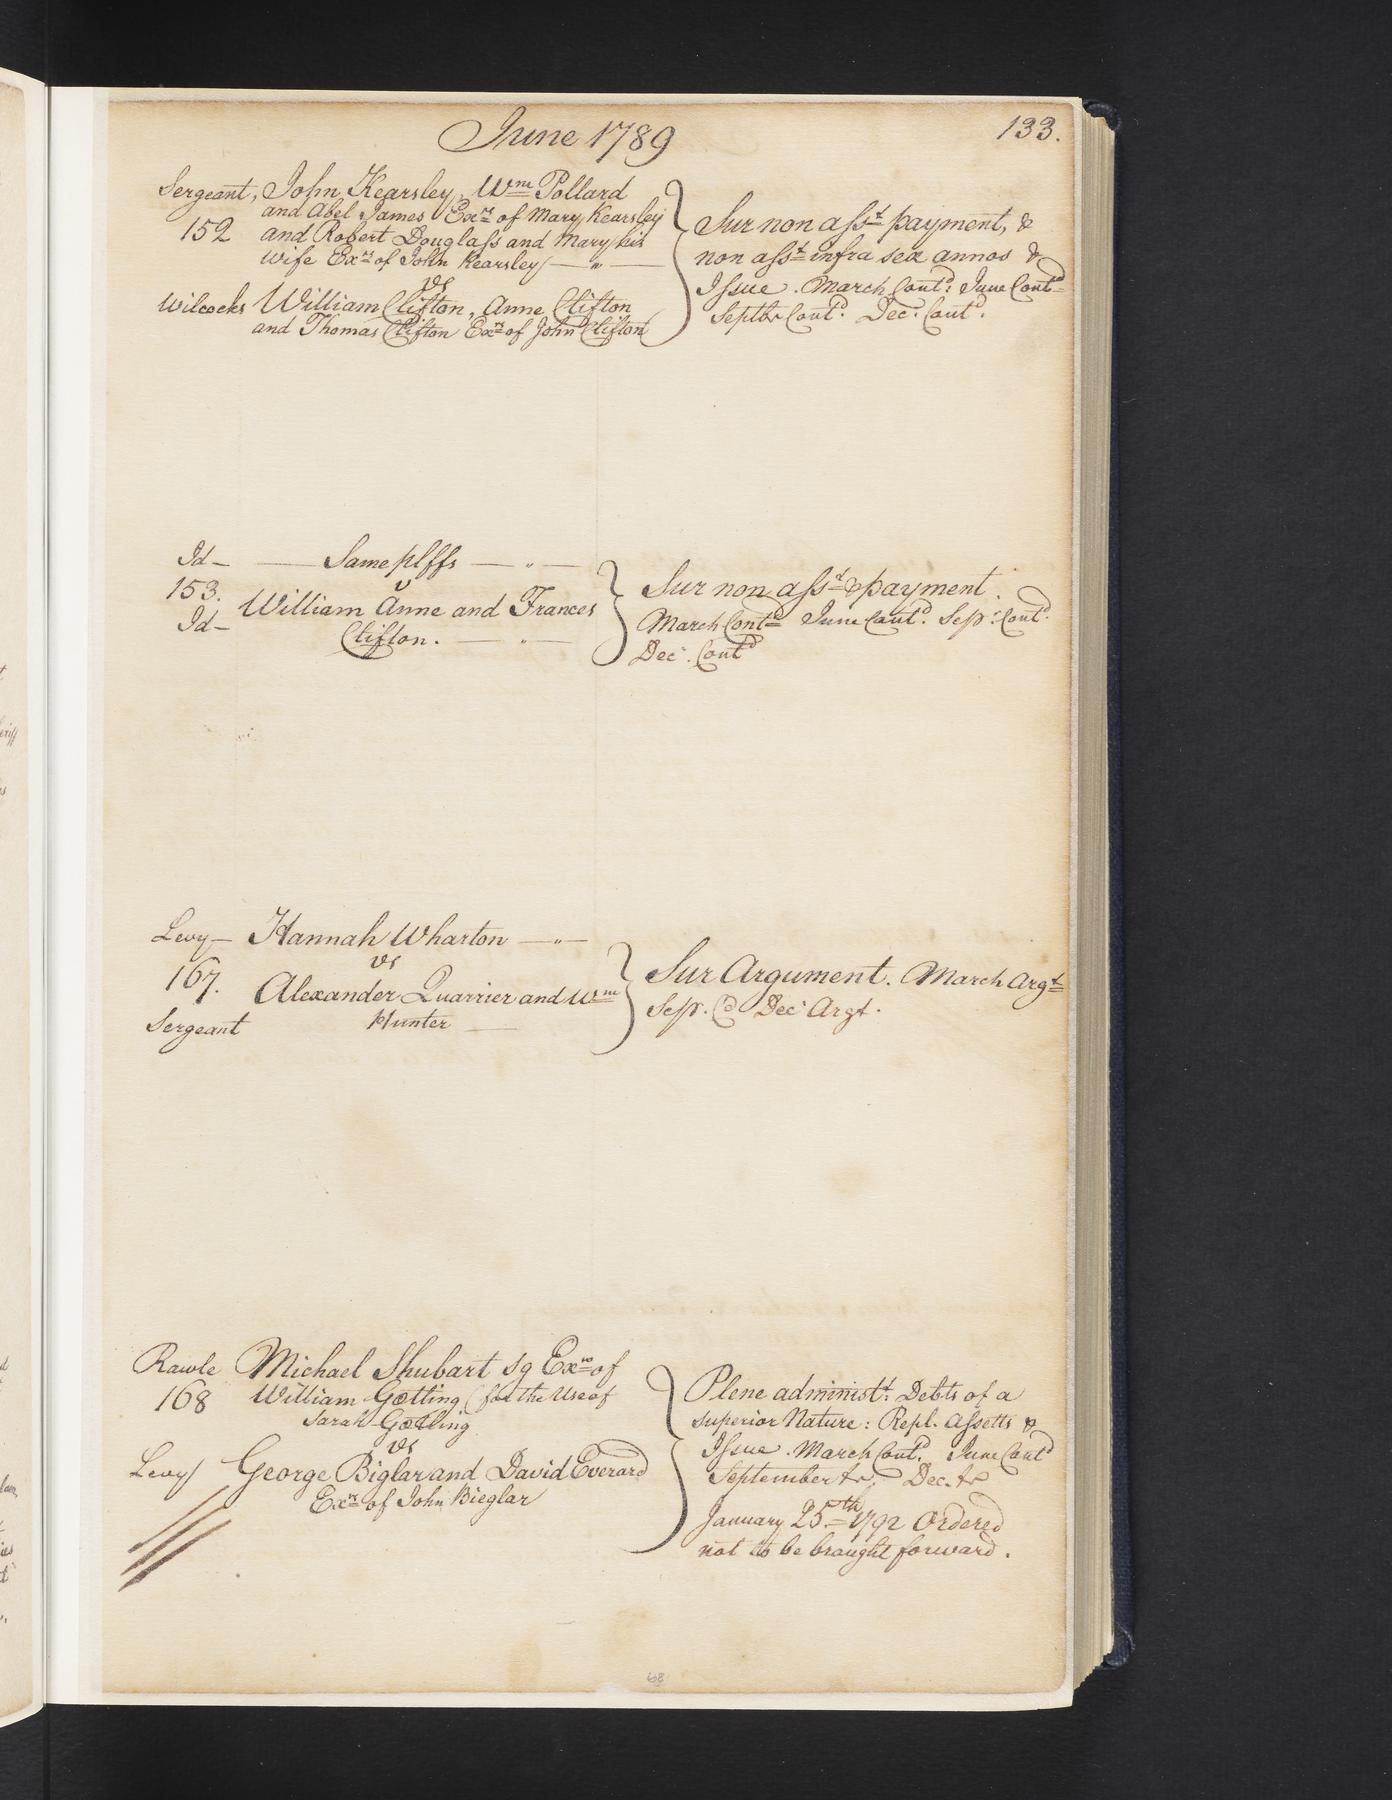 June 1789
133.
Sergeant, John Kearsley, Wm Pollard
and Abel James Exrs of Mary Kearsley
152 and Robert Douglass and Mary his
wife Exrs of John Kearsley
vs
Wilcocks William Clifton, Anne Clifton
and Thomas Clifton Exrs of John Clifton
Sur non asst payment, &
non asst infra sex annos &
Issue. March Contd: June Contd
Septbr Contd. Dec. Contd.
Id— Same plffs
153. v
William Anne and Frances
Id—
Clifton.
Sur non asst & payment.
March Contd June Contd. Sep. Contd.
Dec. Contd
Levy— Hannah Wharton
vs
167. Alexander Quarrier and Wm
Sergeant Hunter
Sur Argument. March Argt
Sep. Cd Dec. Argt.
Rawle Michael Shubart Exr of
168 William Gœtling (for the Use of
Sarah Gœtling
vs
Levy George Biglar and David Everard
Exrs of John Bieglar
Plene administt. Debts of a
superior Nature: Repl. Assetts &
Issue. March Contd. June Contd
September &c. Dec. &c
January 25th 1792 Ordered
not to be brought forward.
68